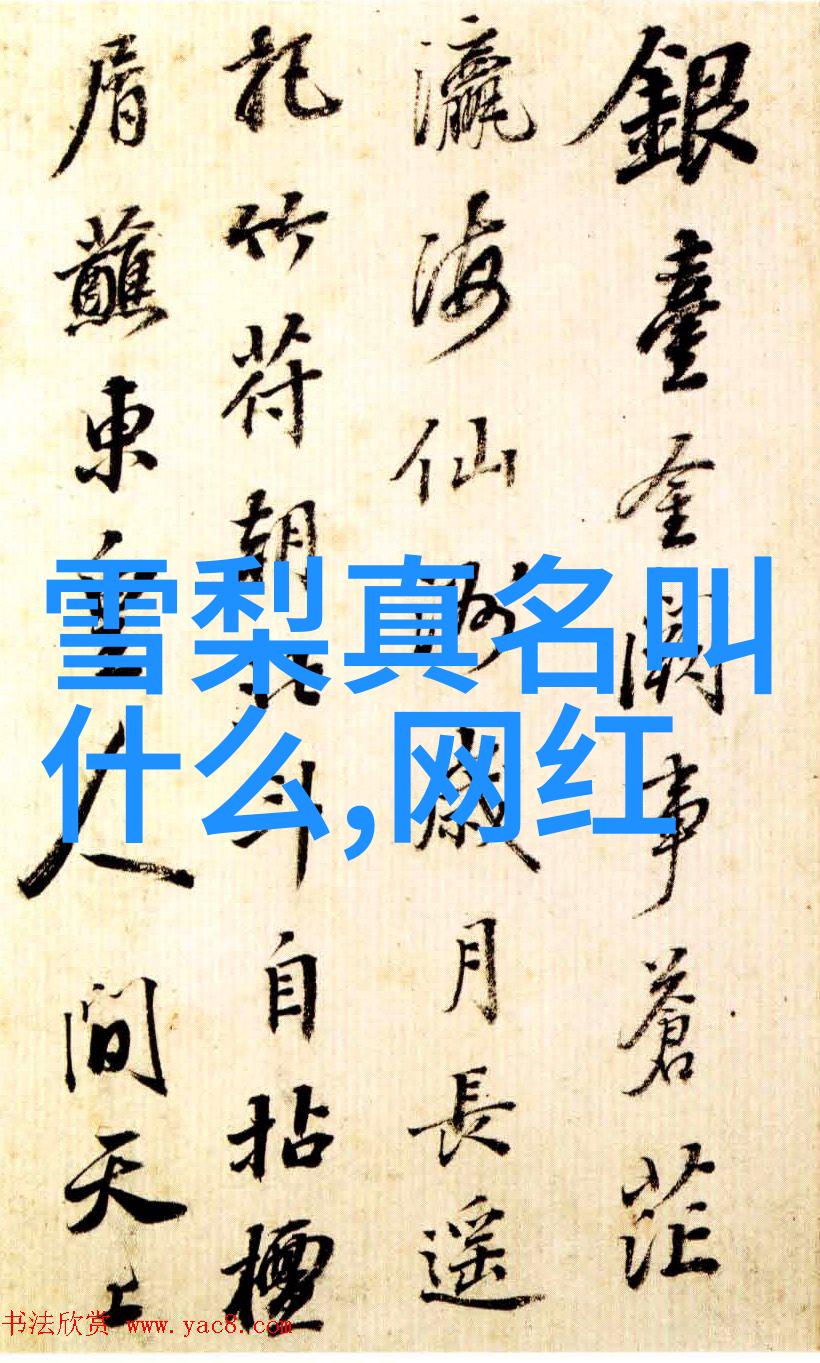 銀臺金闕事蒼茫
瀛海仙洲歲月長遥
託竹符朝北斗自拈檀
屑蘸東皇人間天上
雪梨真名叫
什么,网红
书法欣赏 www.yac8.com